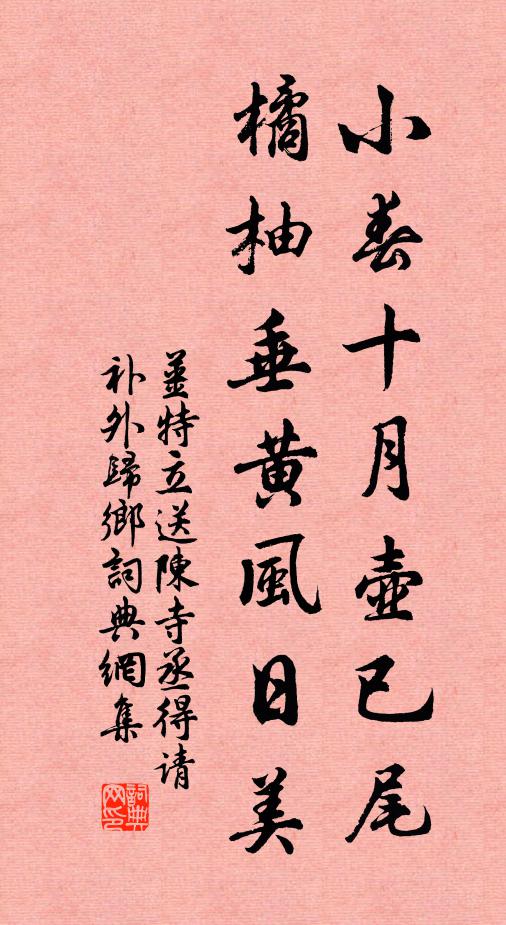 小春十月壺已尾
橘柚垂黄風日美
姜特立送陳寺丞得请
补外歸鄉詞典網集
詞典网印